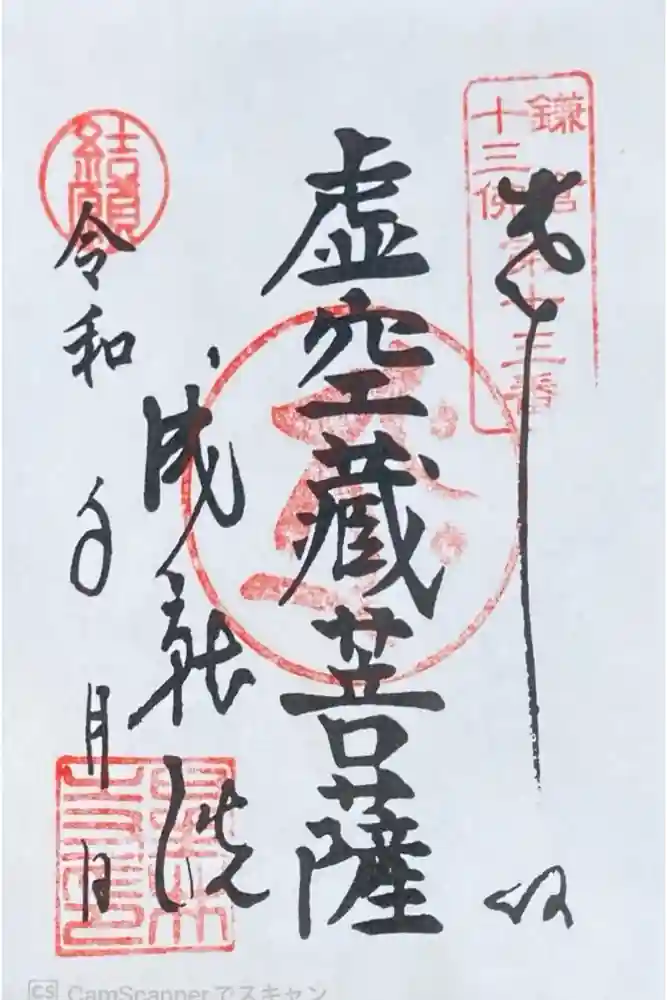 鎌倉
十三佛
第十三番
奉拝
虚空蔵菩薩
成就院
結願
令和 年 月 日
CS CamScannerでスキャン